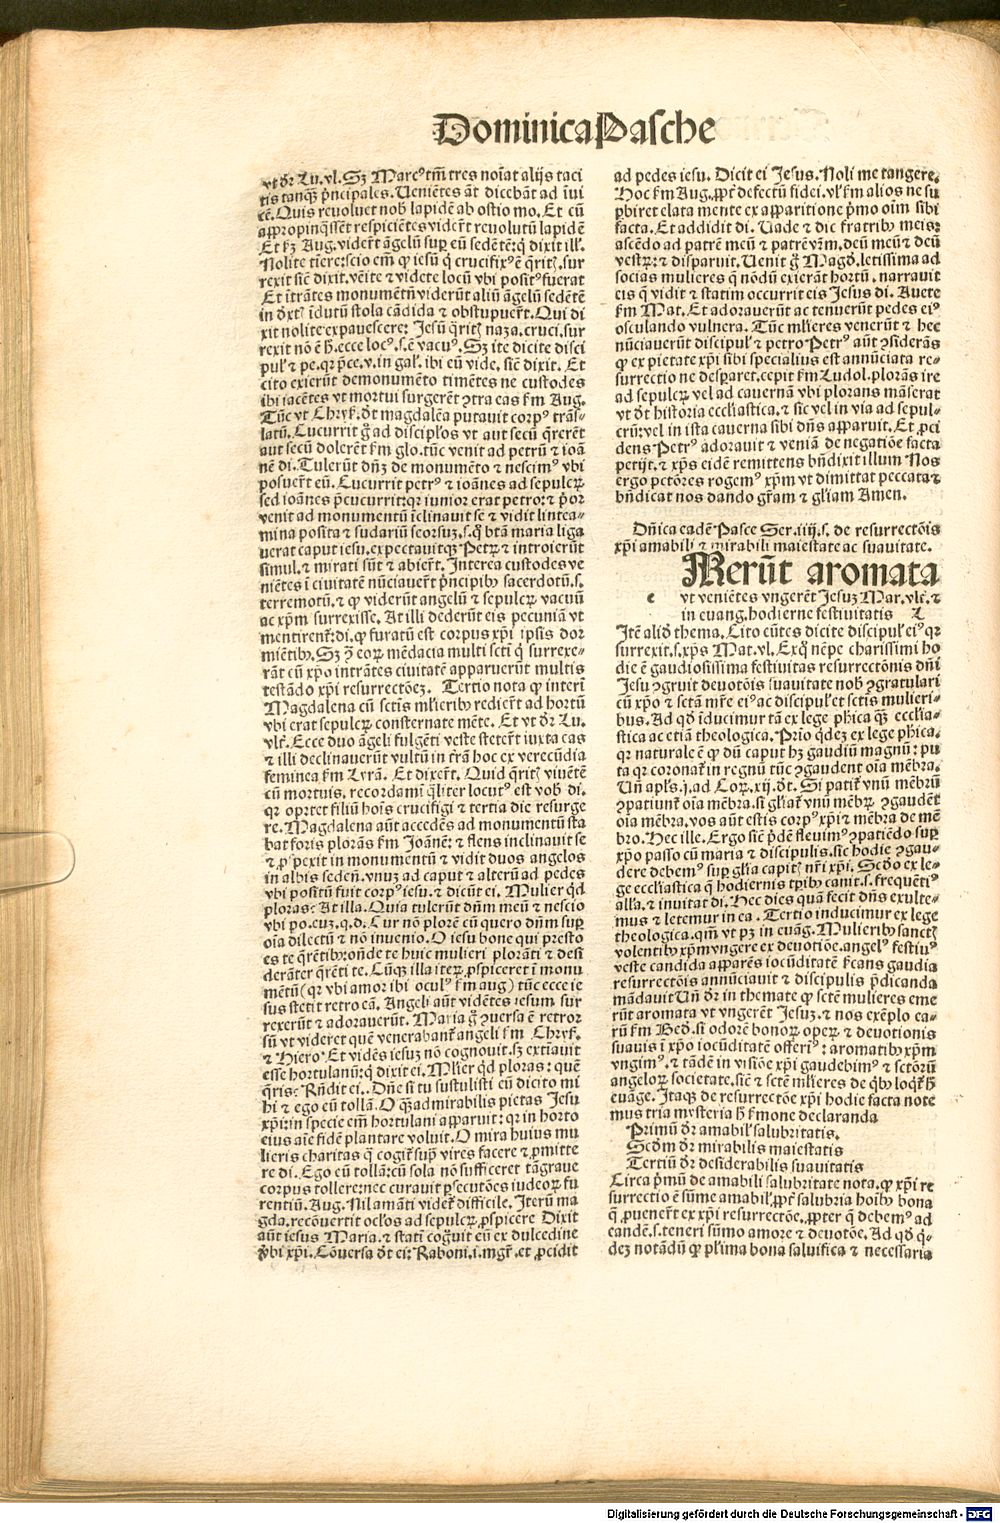 Dominica Pasche
vt dr̄ Lu. vl. Sꝫ Marcꝰ tm̄ tres noīat alijs taci
tis tanqȝ p̄ncipales. Ueniētes aūt dicebāt ad īui
cē. Quis reuoluet nob̓ lapidē ab ostio mo. Et cū
appropinq̄ssent respiciētes vider̄t reuolutū lapidē
Et ẜꝫ Aug. vider̄t āgelū suꝑ eū sedētē: q̄ dixit ill̓.
Nolite tīere: scio em̄ ꝙ iesū q̄ crucifixꝰ ē q̄rit̄. sur
rexit siē dixit. vēite ⁊ videte locū vbi positꝰ fuerat
Et ītrātes monumētū viderūt aliū āgelū sedētē
in dxt̄ īdutū stola cādida ⁊ obstupuer̄t. Qui di
xit nolite expauescere: Jesū q̄rit̄ naza. cruci. sur
rexit nō ē h̄. ecce locꝰ. s. ē vacuꝰ. Sꝫ ite dicite disci
pul̓ ⁊ pe. qr p̄ce. v. in gal̓. ibi eū vide. siē dixit. Et
cito exierūt de monumēto timētes ne custodes
ibi iacētes vt mortui surgerēt ꝯtra eas ẜm Aug.
Tūc vt Chryẜ. dt̄ magdalēa putauit corpꝰ trās-
latū. Cucurrit g̊ ad discipl̓os vt aut secū q̄rerēt
aut secū dolerēt ẜm glo. tūc venit ad petrū ⁊ ioā
nē di. Tulerūt dn̄ꝫ de monumēto ⁊ nescimꝰ vbi
posuer̄t eū. Cucurrit petrꝰ ⁊ ioānes ad sepulcꝝ
sed ioānes p̄cucurrit: qr iunior erat petro: ⁊ p̊or
venit ad monumentū īclinauit se ⁊ vidit lintea-
mina posita ⁊ sudariū seorsuꝫ. s. q̊ btā maria liga
uerat caput iesu. expectauitqꝫ Petꝝ ⁊ introierūt
simul. ⁊ mirati sūt ⁊ abier̄t. Interea custodes ve
niētes ī ciuitatē nūciauer̄t p̄ncipibꝰ sacerdotū. s.
terremotū. ⁊ ꝙ viderūt angelū ⁊ sepulcꝝ vacuū
ac xp̄m surrexisse. At illi dederūt eis pecuniā vt
mentirent̄: di. ꝙ furatū est corpus xp̄i ipsis dor
miētibꝰ. Sꝫ ꝯ̄ eoꝝ mēdacia multi scti q̄ surrexe-
rāt cū xp̄o intrātes ciuitatē apparuerūt multis
testādo xp̄i resurrectōeꝫ. Tertio nota ꝙ interī
Magdalena cū sctis ml̓ieribꝰ redier̄t ad hortū
vbi erat sepulcꝝ consternate mēte. Et vt dr̄ Lu.
vlt̓. Ecce duo āgeli fulgēti veste steter̄t iuxta eas
⁊ illi declinauerūt vultū in tr̄ā hoc ex verecūdia
feminea ẜm Lyrā. Et dixer̄t. Quid q̄rit̄ viuētē
cū mortuis. recordamī qȝliter locutꝰ est vob̓ di.
qr oportet filiū hoīs crucifigi ⁊ tertia die resurge
re. Magdalena aūt accedēs ad monumentū sta
bat foris plorās ẜm Joānē: ⁊ flens inclinauit se
⁊ ꝓspexit in monumentū ⁊ vidit duos angelos
in albis sedeñ. vnuꝫ ad caput ⁊ alterū ad pedes
vbi positū fuit corpꝰ iesu. ⁊ dicūt ei. Mulier qd̓
ploras: At illa. Quia tulerūt dn̄m meū ⁊ nescio
vbi po. euꝫ. q. d. Cur nō plorē cū quero dn̄m suꝑ
oīa dilectū ⁊ nō inuenio. O iesu bone qui presto
es te q̄rētibꝰ: oñde te huic mulieri plorāti ⁊ desi
derāter q̄rēti te. Cūqꝫ illa iteꝝ ꝓspiceret ī monu
mētū (qr vbi amor ibi oculꝰ ẜm aug) tūc ecce ie
sus stetit retro eā. Angeli aūt vidētes iesum sur
rexerūt ⁊ adorauerūt. Maria g̊ ꝯuersa ē retror
sū vt videret quē venerabant̄ angeli ẜm Chryẜ.
⁊ Hiero. Et vidēs iesuꝫ nō cognouit. sꝫ extīauit
esse hortulanū: q̄ dixit ei. Ml̓ier qd̓ ploras: quē
q̄ris: Rn̄dit ei.. Dn̄e si tu sustulisti eū dicito mi
hi ⁊ ego eū tollā. O qȝ admirabilis pietas Jesu
xp̄i: in specie em̄ hortulani apparuit: qr in horto
eius aīe fidē plantare voluit. O mira huius mu
lieris charitas q̄ cogit̄ suꝑ vires facere ⁊ ꝓmitte
re di. Ego eū tollā: cū sola nō sufficeret tā graue
corpus tollere: nec curauit ꝑsecutōes iudeoꝝ fu
rentiū. Aug. Nil amāti videt̄ difficile. Iterū ma
gda. recōuertit ocl̓os ad sepulcꝝ. ꝓspicere Dixit
aūt iesus Maria. ⁊ statī cog̊uit eū ex dulcedine
v̓bi xp̄i. Cōuersa dt̄ ei: Raboni. i. mgr̄. et ꝓcidit
ad pedes iesu. Dicit ei Jesus. Noli me tangere.
Hoc ẜm Aug. ꝓpt̄ defectū fidei. vl̓ ẜm alios ne su
ꝑbiret elata mente ex apparitione p̊mo oīm sibi
facta. Et addidit di. Uade ⁊ dic fratribꝰ meis:
ascēdo ad patrē meū ⁊ patrē vr̄m. deū meū ⁊ deū
vestꝝ: ⁊ disparuit. Uenit g̊ Magd̓. letissima ad
socias mulieres q̄ nōdū exierāt hortū. narrauit
eis q̄ vidit ⁊ statim occurrit eis Jesus di. Auete
ẜm Mat. Et adorauerūt ac tenuerūt pedes eiꝰ
osculando vulnera. Tūc ml̓ieres venerūt ⁊ hec
nūciauerūt discipul̓ ⁊ petro Petrꝰ aūt ꝯsiderās
ꝙ ex pietate xp̄i sibi specialius est annūciata re-
surrectio ne desꝑaret. cepit ẜm Ludol. plorās ire
ad sepulcꝝ vel ad cauernā vbi plorans māserat
vt dt̄ historia ecclīastica. ⁊ sic vel in via ad sepul-
crū: vel in ista cauerna sibi dn̄s apparuit. Et ꝓci
dens Petrꝰ adorauit ⁊ veniā de negatiōe facta
petijt. ⁊ xp̄s eidē remittens bn̄dixit illum Nos
ergo pctōres rogemꝰ xp̄m vt dimittat peccata ⁊
bn̄dicat nos dando gr̄am ⁊ gl̓iam Amen.
Dn̄ica eadē Pasce Ser. iiij. s. de resurrectōis
xp̄i amabili ⁊ mirabili maiestate ac suauitate.
Merūt aromata
e vt veniētes vngerēt Jesuꝫ Mar. vlt̓. ⁊
in euang. hodierne festiuitatis
Itē aliđ thema. Cito eūtes dicite discipul̓ eiꝰ qr
surrexit. s. xp̄s Mat. vl. Ex q̊ nēpe charissimi ho
die ē gaudiosissima festiuitas resurrectōnis dn̄i
Jesu ꝯgruit deuotōis suauitate nob̓ ꝯgratulari
cū xp̄o ⁊ sctā mr̄e eiꝰ ac discipul̓ et sctis mulieri-
bus. Ad qđ īducimur tā ex lege phīca qȝ ecclīa-
stica ac etiā theologica. Prīo qdeꝫ ex lege phīca.
qr naturale ē ꝙ dū caput hꝫ gaudiū magnū: pu
ta qr coronat̄ in regnū tūc ꝯgaudent oīa mēbra.
Uñ apl̓s. j. ad Coꝝ. xij. dt̄. Si patit̄ vnū mēbrū
ꝯpatiunt̄ oīa mēbra. si gl̓iat̄ vnū mēbꝝ ꝯgaudēt
oīa mēbra. vos aūt estis corpꝰ xp̄i ⁊ mēbra de mē
bro. Hec ille. Ergo siē p̊dē fleuimꝰ ꝯpatiēdo suꝑ
xp̄o passo cū maria ⁊ discipulis. sic hodie ꝯgau-
dere debemꝰ suꝑ gl̓ia capit̄ nr̄i xp̄i. Scđo ex le-
ge ecclīastica q̄ hodiernis tꝑibꝰ canit. s. frequētiꝰ
all̓a. ⁊ inuitat di. Hec dies quā fecit dn̄s exulte-
mus ⁊ letemur in ea. Tertio inducimur ex lege
theologica. qm̄ vt pꝫ in euāg. Mulieribꝰ sanct̄
volentibꝰ xp̄m vngere ex deuotiōe. angelꝰ festiuꝰ
veste candida apparēs iocūditatē ẜcans gaudia
resurrectōis annūciauit ⁊ discipulis p̄dicanda
mādauit Uñ dr̄ in themate ꝙ sctē mulieres eme
rūt aromata vt vngerēt Jesuꝫ. ⁊ nos exēplo ea-
rū ẜm Bed̓. si odorē bonoꝝ opeꝝ ⁊ deuotionis
suauis ī xp̄o iocūditatē offerīꝰ: aromatibꝰ xp̄m
vngimꝰ. ⁊ tādē in visiōe xp̄i gaudebimꝰ ⁊ sctōrū
angeloꝝ societate. siē ⁊ sctē ml̓ieres de qbꝰ loqt̄ h̄
euāge. Itaqꝫ de resurrectōe xp̄i hodie facta note
mus tria mysteria h̄ ẜmone declaranda
Primū dr̄ amabil̓ salubritatis.
Scđm dr̄ mirabilis maiestatis
Tertiū dr̄ desiderabilis suauitatis
Circa p̊mū de amabili salubritate nota. ꝙ xp̄i re
surrectio ē sūme amabil̓. ꝓpt̄ salubria hoībꝰ bona
q̄ ꝓuener̄t ex xp̄i resurrectōe. ꝓpter q̄ debemꝰ ad
eande. s. teneri sūmo amore ⁊ deuotōe. Ad qđ q̄-
deꝫ notādū ꝙ pl̓ima bona saluifica ⁊ necessaria
Digitalisierung gefördert durch die Deutsche Forschungsgemeinschaft - DFG